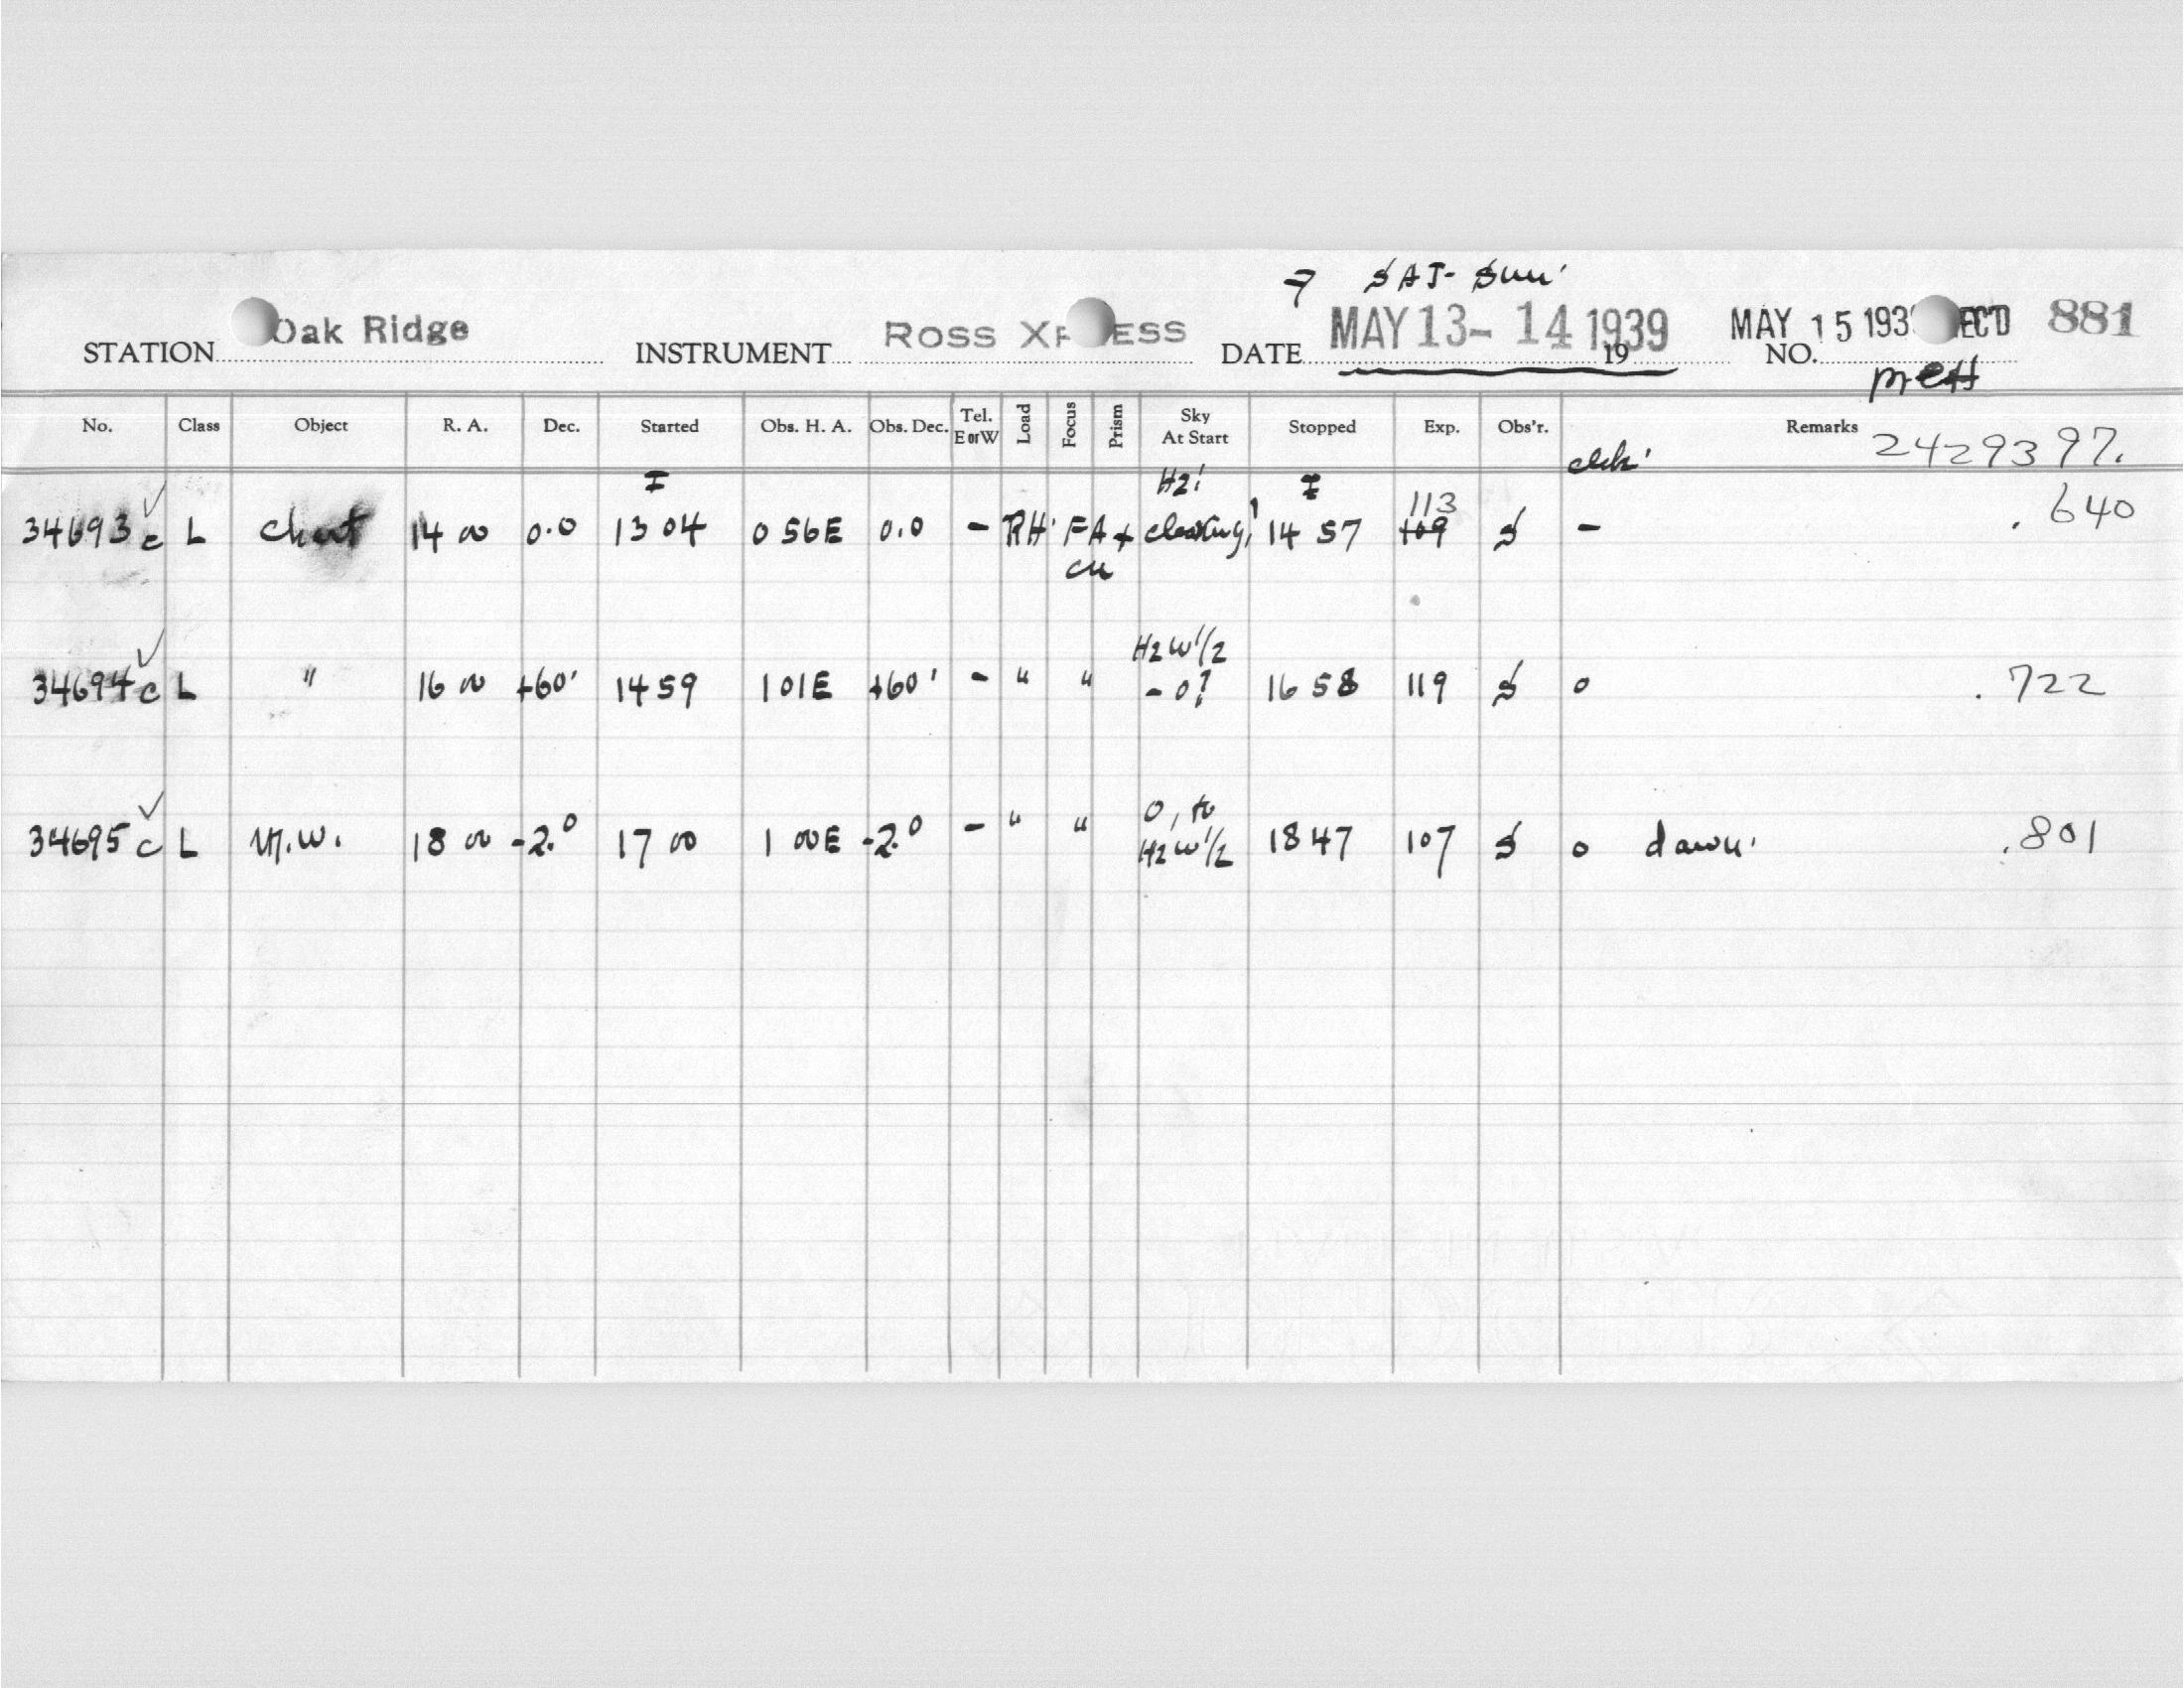 7 SAT- Sun.
STATION Oak Ridge INSTRUMENT ROSS XP ESS DATE MAY 13- 14 1939 19 MAY 15 193 EC'D NO. 881
No. Class Object R. A. Dec. Started Obs. H. A. Obs. Dec. Tel. E or W Load Focus Prism Sky At Start Stopped Exp. Obs'r. Remarks 2429397.
I Hz! I 113
34693 c L 14 00 0.0 13 04 0 56E 0.0 - RH FA + clearing! 14 57 109 S - .640
Hz W 1/2
34694 c L " 16 00 +60' 14 59 1 01E +60' - " " - 0? 16 58 119 S 0 .722
0, to
34695 c L M.W. 18 00 -2.° 17 00 1 00E -2.° - " " Hz W 1/2 18 47 107 S 0 dawn. .801